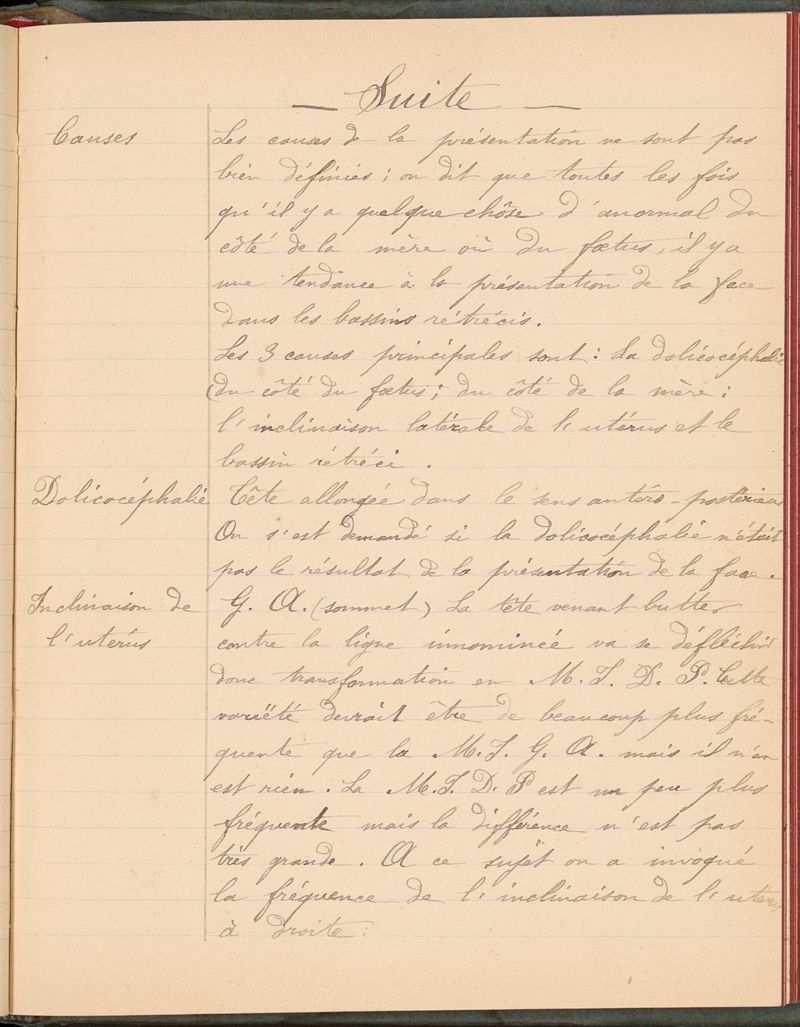 — Suite —
Causes
Les causes de la présentation ne sont pas
bien définies ; on dit que toutes les fois
qu'il y a quelque chôse d'anormal du
côté de la mère où du fœtus, il y a
une tendance à la présentation de la face
dans les bassins rétrécis.
Les 3 causes principales sont : La dolicocéphalie
(du côté du fœtus ; du côté de la mère :
l'inclinaison latérale de l'utérus et le
bassin rétréci .
Dolicocéphalie
Tête allongée dans le sens antéro-postérieur
On s'est demandé si la dolicocéphalie n'était
pas le résultat de la présentation de la face.
Inclinaison de
l'utérus
G. A. (sommet) La tête venant butter
contre la ligne innominée va se défléchir
donc transformation en M. I. D. P. Cette
variété devrait être de beaucoup plus fré-
quente que la M. I. G. A. mais il n'en
est rien. La M. I. D. P est un peu plus
fréquente mais la différence n'est pas
très grande. A ce sujet on a invoqué
la fréquence de l'inclinaison de l'utérus
à droite.